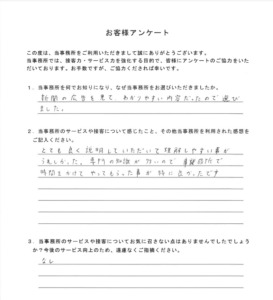 お客様アンケート
この度は、当事務所をご利用いただきまして誠にありがとうございます。
当事務所では、接客力・サービス力を強化する目的で、皆様にアンケートのご協力をいた
だいております。お手数ですが、ご協力くだされば幸いです。
1．当事務所を何でお知りになり、なぜ当事務所をお選びいただきましたか。
新聞の広告を見て、わかりやすい内容だったので選び
ました。
2．当事務所のサービスや接客について感じたこと、その他当事務所を利用された感想を
ご記入ください。
とても良く説明していただいて理解しやすい事が
うれしかった。専門の知識が
時間をかけてやってもらった事が特に良かったです
3．当事務所のサービスや接客についてお気に召さない点はありませんでしたでしょう
か？今後のサービス向上のため、遠慮なくご指摘ください。
なし